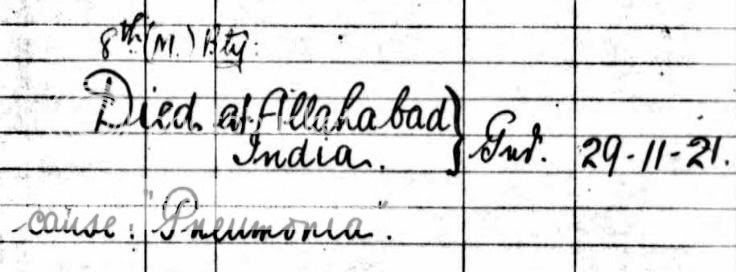 8th (M.) Bty.
Died at Allahabad } Gnr. 29-11-21.
India.
cause: "Pneumonia".